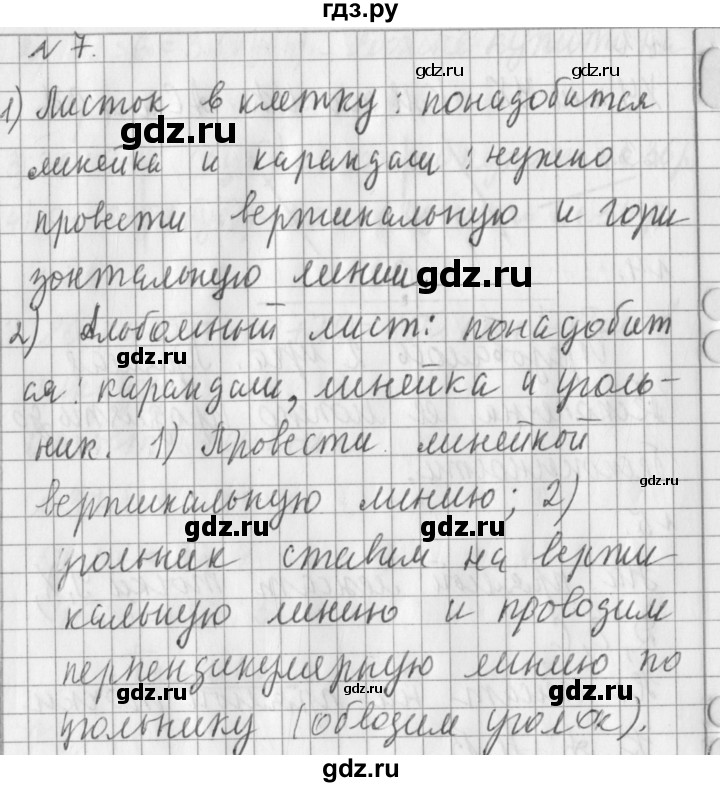 гдз.ру
N 7.
gdz.ru
gdz.ru
1) Листок в клетку: понадобится
gdz.ru
линейка и карандаш: нужно
провести вертикальную и гори
зонтальную линии
gdz.ru
2) Альбомный лист: понадобит
gdz.ru
gdz.ru
ся: карандаш, линейка и уголь-
ник. 1) Провести линейкой
gdz.ru
вертикальную линию; 2)
gdz.ru
gdz.ru
угольник ставим на верти-
кальную линию и проводим
перпендикулярную линию по
gdz.ru
gdz.ru
gdz.ru
угольнику (обводим уголок).
gdz.ru